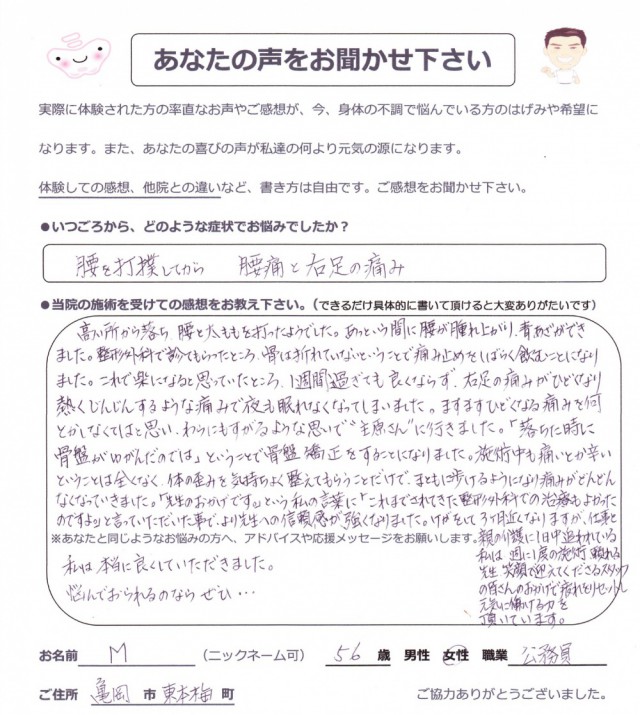 あなたの声をお聞かせ下さい
実際に体験された方の率直なお声やご感想が、今、身体の不調で悩んでいる方のはげみや希望に
なります。また、あなたの喜びの声が私達の何より元気の源になります。
体験しての感想、他院との違いなど、書き方は自由です。ご感想をお聞かせ下さい。
●いつごろから、どのような症状でお悩みでしたか？
腰を打撲してから 腰痛と右足の痛み
●当院の施術を受けての感想をお教え下さい。（できるだけ具体的に書いて頂けると大変ありがたいです）
高い所から落ち、腰と太ももを打ったようでした。あっという間に腰が腫れ上がり、青あざができ
ました。整形外科で診てもらったところ、骨は折れていないということで痛み止めをしばらく飲むことになり
ました。これで楽になると思っていたところ、1週間過ぎても良くならず、右足の痛みがひどくなり
熱くじんじんするような痛みで夜も眠れなくなってしまいました。ますますひどくなる痛みを何
とかしなくてはと思い、わらにもすがるような思いで"主原さん"に行きました。「落ちた時に
骨盤がゆがんだのでは」ということで骨盤矯正をすることになりました。施術中も痛いとか辛い
ということは全くなく、体の歪みを気持ちよく整えてもらうことだけで、まともに歩けるようになり痛みがどんどん
なくなっていきました。「先生のおかげです。」という私の言葉に「これまでされてきた整形外科での治療もよかった
のですよ」と言っていただいた事で、より先生への信頼感が強くなりました。けがをして3ヶ月近くなりますが、仕事と
親の介護に1日中追われている
私は 週に1度の施術、頼れる
先生、笑顔で迎えてくださるスタッフ
の皆さんのおかげで疲れをリセットし
元気に働ける力を
頂いています。
※あなたと同じようなお悩みの方へ、アドバイスや応援メッセージをお願いします。
私は本当に良くていただきました。
悩んでおられるのなら ぜひ…
お名前 M （ニックネーム可） 56 歳 男性 女性 職業 公務員
ご住所 亀岡 市 東本梅 町 ご協力ありがとうございました。